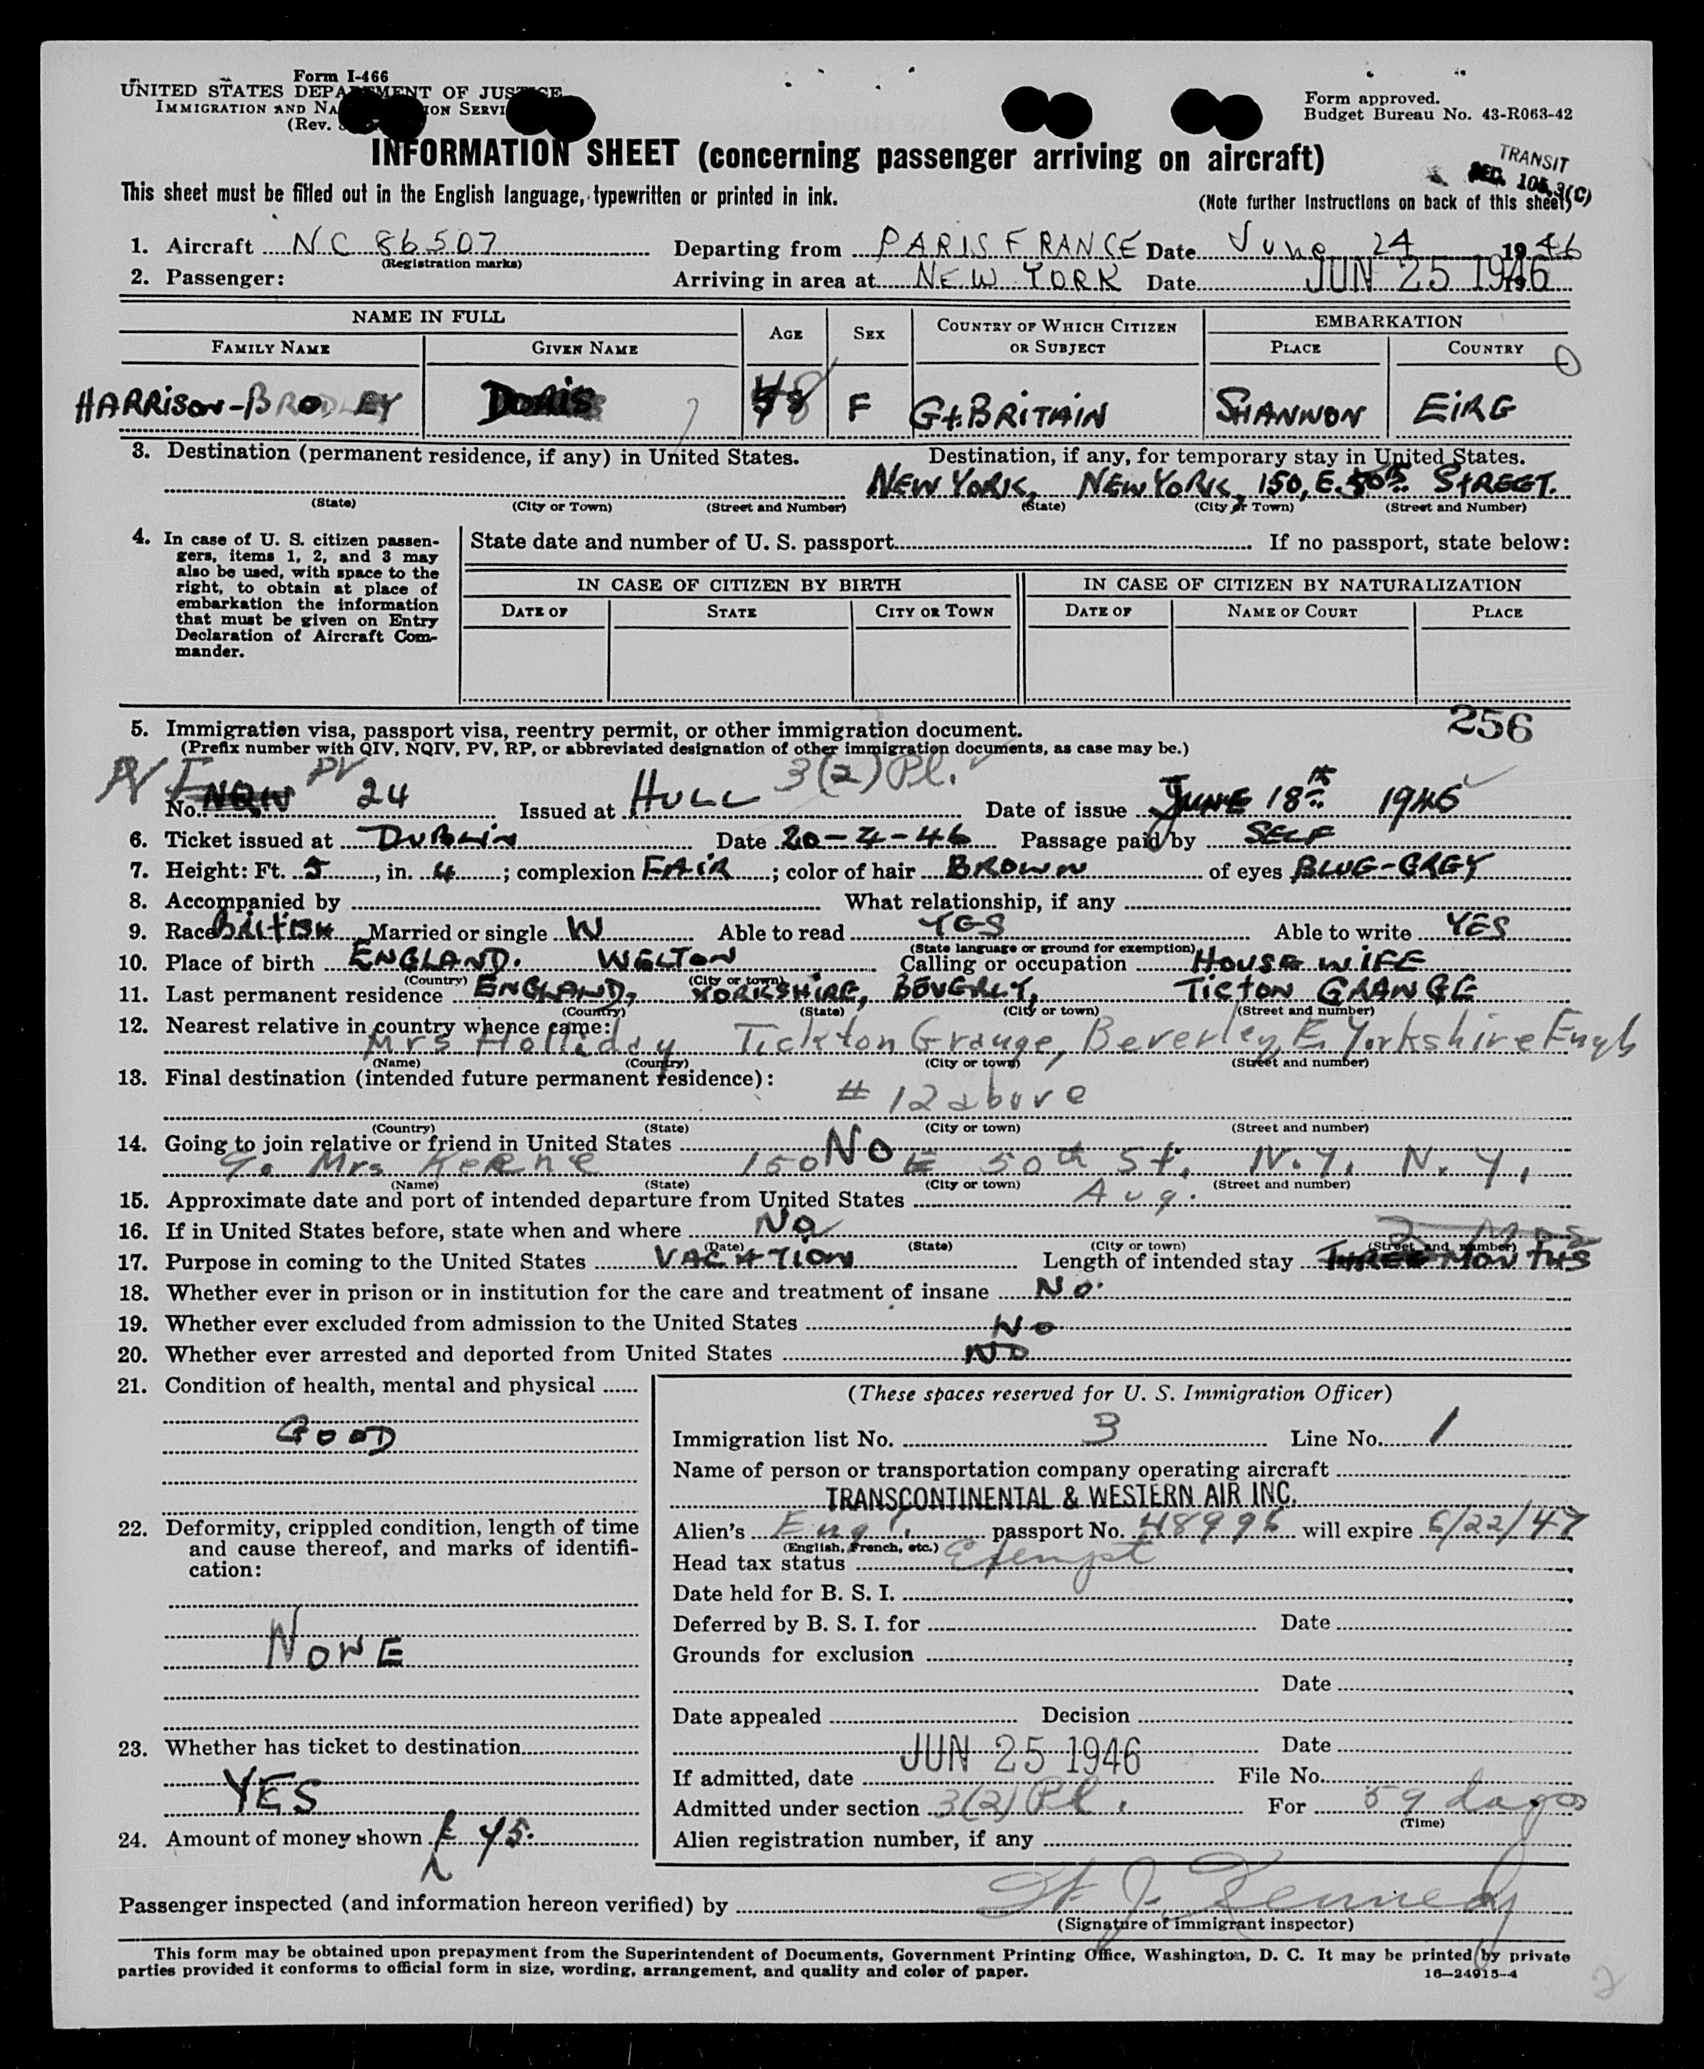 Form I-466
UNITED STATES DEPARTMENT OF JUSTICE
IMMIGRATION AND NATURALIZATION SERVICE
(Rev.
Form approved.
Budget Bureau No. 43-R063-42
INFORMATION SHEET (concerning passenger arriving on aircraft)
TRANSIT
SEC. 105.3(C)
This sheet must be filled out in the English language, typewritten or printed in ink.
(Note further instructions on back of this sheet)
1. Aircraft NC 86507 Departing from PARIS FRANCE Date June 24 1946
(Registration marks)
2. Passenger: Arriving in area at NEW YORK Date JUN 25 1946
NAME IN FULL AGE SEX COUNTRY OF WHICH CITIZEN OR SUBJECT EMBARKATION
FAMILY NAME GIVEN NAME PLACE COUNTRY
HARRISON-BRODLEY DORIS 48 F Gt. BRITAIN SHANNON EIRE
3. Destination (permanent residence, if any) in United States. Destination, if any, for temporary stay in United States.
NEW YORK, NEW YORK, 150, E. 50th STREET.
(State) (City or Town) (Street and Number) (State) (City or Town) (Street and Number)
4. In case of U. S. citizen passengers, items 1, 2, and 3 may also be used, with space to the right, to obtain at place of embarkation the information that must be given on Entry Declaration of Aircraft Commander.
State date and number of U. S. passport If no passport, state below:
IN CASE OF CITIZEN BY BIRTH IN CASE OF CITIZEN BY NATURALIZATION
DATE OF STATE CITY OR TOWN DATE OF NAME OF COURT PLACE
256
5. Immigration visa, passport visa, reentry permit, or other immigration document.
(Prefix number with QIV, NQIV, PV, RP, or abbreviated designation of other immigration documents, as case may be.)
PV 3(2) Pl.
No. 24 Issued at HULL Date of issue JUNE 18th 1946
6. Ticket issued at DUBLIN Date 20-4-46 Passage paid by SELF
7. Height: Ft. 5, in. 4; complexion FAIR; color of hair BROWN of eyes BLUE-GREY
8. Accompanied by What relationship, if any
9. Race BRITISH Married or single W Able to read YES Able to write YES
(State language or ground for exemption)
10. Place of birth ENGLAND. WELTON Calling or occupation HOUSEWIFE
(Country) (City or town)
11. Last permanent residence ENGLAND, YORKSHIRE, BEVERLY, TICTON GRANGE
(Country) (State) (City or town) (Street and number)
12. Nearest relative in country whence came:
Mrs Holliday Tickton Grange, Beverley, E. Yorkshire Engl
(Name) (Country) (City or town) (Street and number)
13. Final destination (intended future permanent residence):
# 12 above
(Country) (State) (City or town) (Street and number)
14. Going to join relative or friend in United States NO
Mrs Keene 150 E 50th St, N.Y. N.Y.
(Name) (State) (City or town) (Street and number)
15. Approximate date and port of intended departure from United States Aug.
16. If in United States before, state when and where No
(Date) (State) (City or town) (Street and number)
2 Mos
17. Purpose in coming to the United States VACATION Length of intended stay THREE MONTHS
18. Whether ever in prison or in institution for the care and treatment of insane No.
19. Whether ever excluded from admission to the United States No
20. Whether ever arrested and deported from United States NO
21. Condition of health, mental and physical
GOOD
22. Deformity, crippled condition, length of time and cause thereof, and marks of identification:
NONE
23. Whether has ticket to destination
YES
24. Amount of money shown £ 45.
(These spaces reserved for U. S. Immigration Officer)
Immigration list No. 3 Line No. 1
Name of person or transportation company operating aircraft
TRANSCONTINENTAL & WESTERN AIR INC.
Alien's Engl. passport No. 48996 will expire 6/22/47
(English, French, etc.)
Head tax status Exempt
Date held for B. S. I.
Deferred by B. S. I. for Date
Grounds for exclusion
Date
Date appealed Decision
Date
If admitted, date JUN 25 1946 File No.
Admitted under section 3(2) Pl. For 59 days
(Time)
Alien registration number, if any
Passenger inspected (and information hereon verified) by J. Kennedy
(Signature of immigrant inspector)
This form may be obtained upon prepayment from the Superintendent of Documents, Government Printing Office, Washington, D. C. It may be printed by private
parties provided it conforms to official form in size, wording, arrangement, and quality and color of paper.
16—24915-4
2